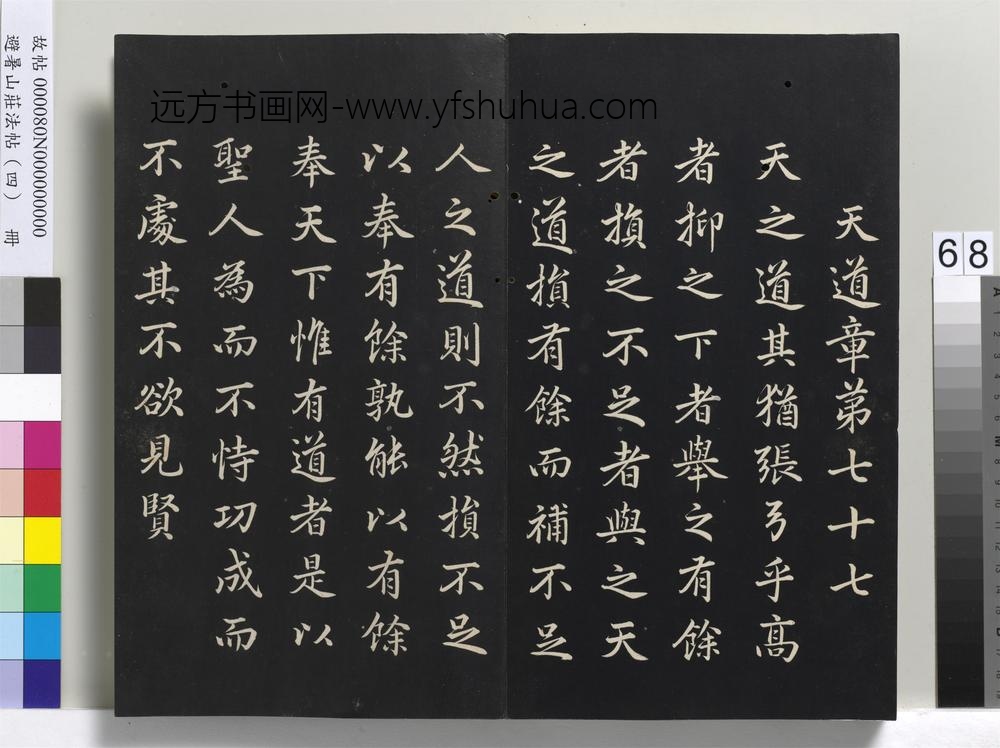 天道章第七十七
天之道其猶張弓乎高
者抑之下者舉之有餘
者損之不足者與之天
之道損有餘而補不足
人之道則不然損不足
以奉有餘孰能以有餘
奉天下惟有道者是以
聖人為而不恃功成而
不處其不欲見賢
远方书画网-www.yfshuhua.com
故帖 000080N000000000
避暑山莊法帖（四） 冊
68